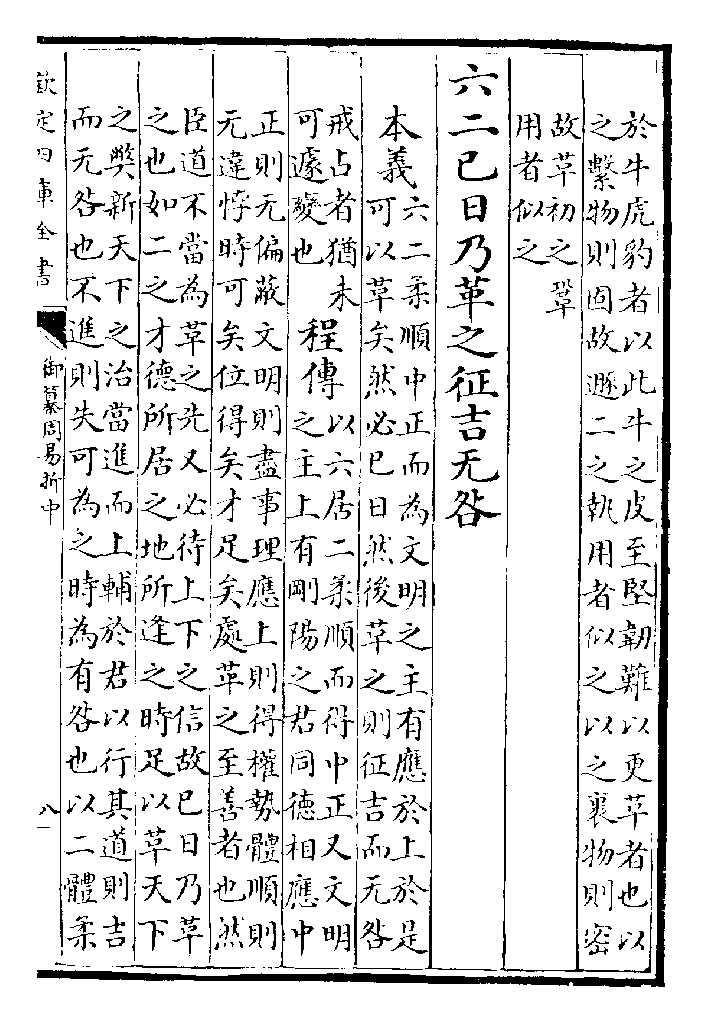 於牛虎豹者以此牛之皮至堅韌難以更革者也以
之繫物則固故遯二之執用者似之以之裹物則密
故革初之鞏
用者似之
六二已日乃革之征吉无咎
本義六二柔順中正而為文明之主有應於上於是
可以革矣然必已日然後革之則征吉而无咎
戒占者猶未
可遽變也
程傳以六居二柔順而得中正又文明
之主上有剛陽之君同德相應中
正則无偏蔽文明則盡事理應上則得權勢體順則
无違悖時可矣位得矣才足矣處革之至善者也然
臣道不當為革之先又必待上下之信故已日乃革
之也如二之才德所居之地所逢之時足以革天下
之獘新天下之治當進而上輔於君以行其道則吉
而无咎也不進則失可為之時為有咎也以二體柔
欽定四庫全書
御纂周易折中
八